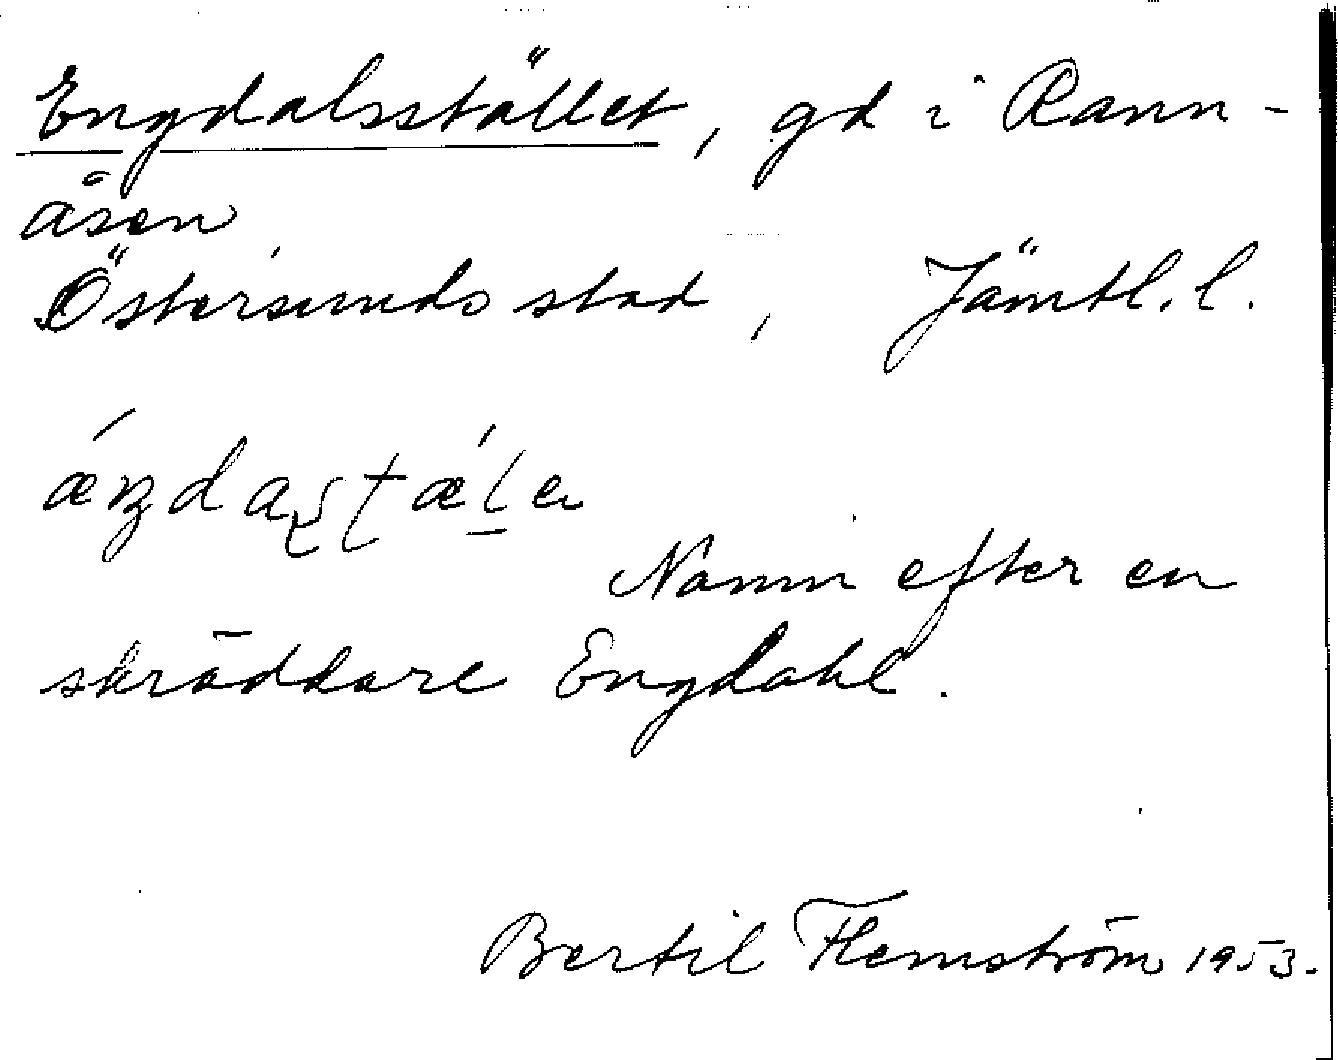 Engdalsstället, gd i Rann-
åsen
Östersunds stad, Jämtl. l.
Namn efter en
skräddare Engdahl.
Bertil Flemström 1953.